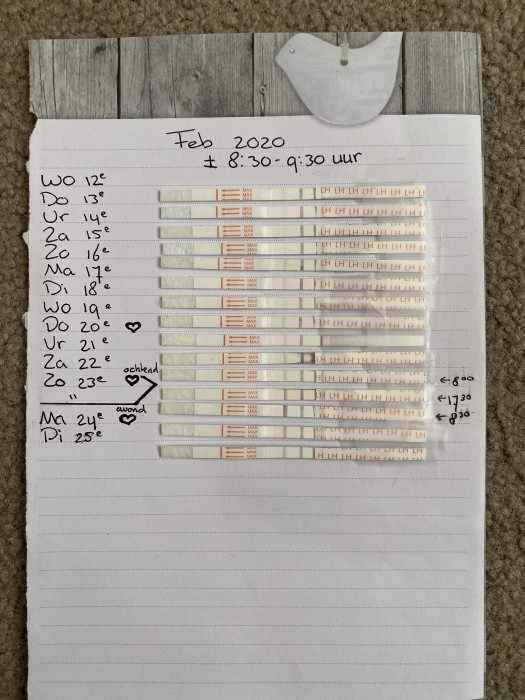 Feb 2020
± 8:30 - 9:30 uur
Wo 12e
Do 13e
Vr 14e
Za 15e
Zo 16e
Ma 17e
Di 18e
Wo 19e
Do 20e ♡
Vr 21e
Za 22e
ochtend
Zo 23e ♡ ← 8:00
" ← 17:30
avond
Ma 24e ♡ ← 8:30
Di 25e
MAX
MAX
LH LH LH LH LH LH LH LH